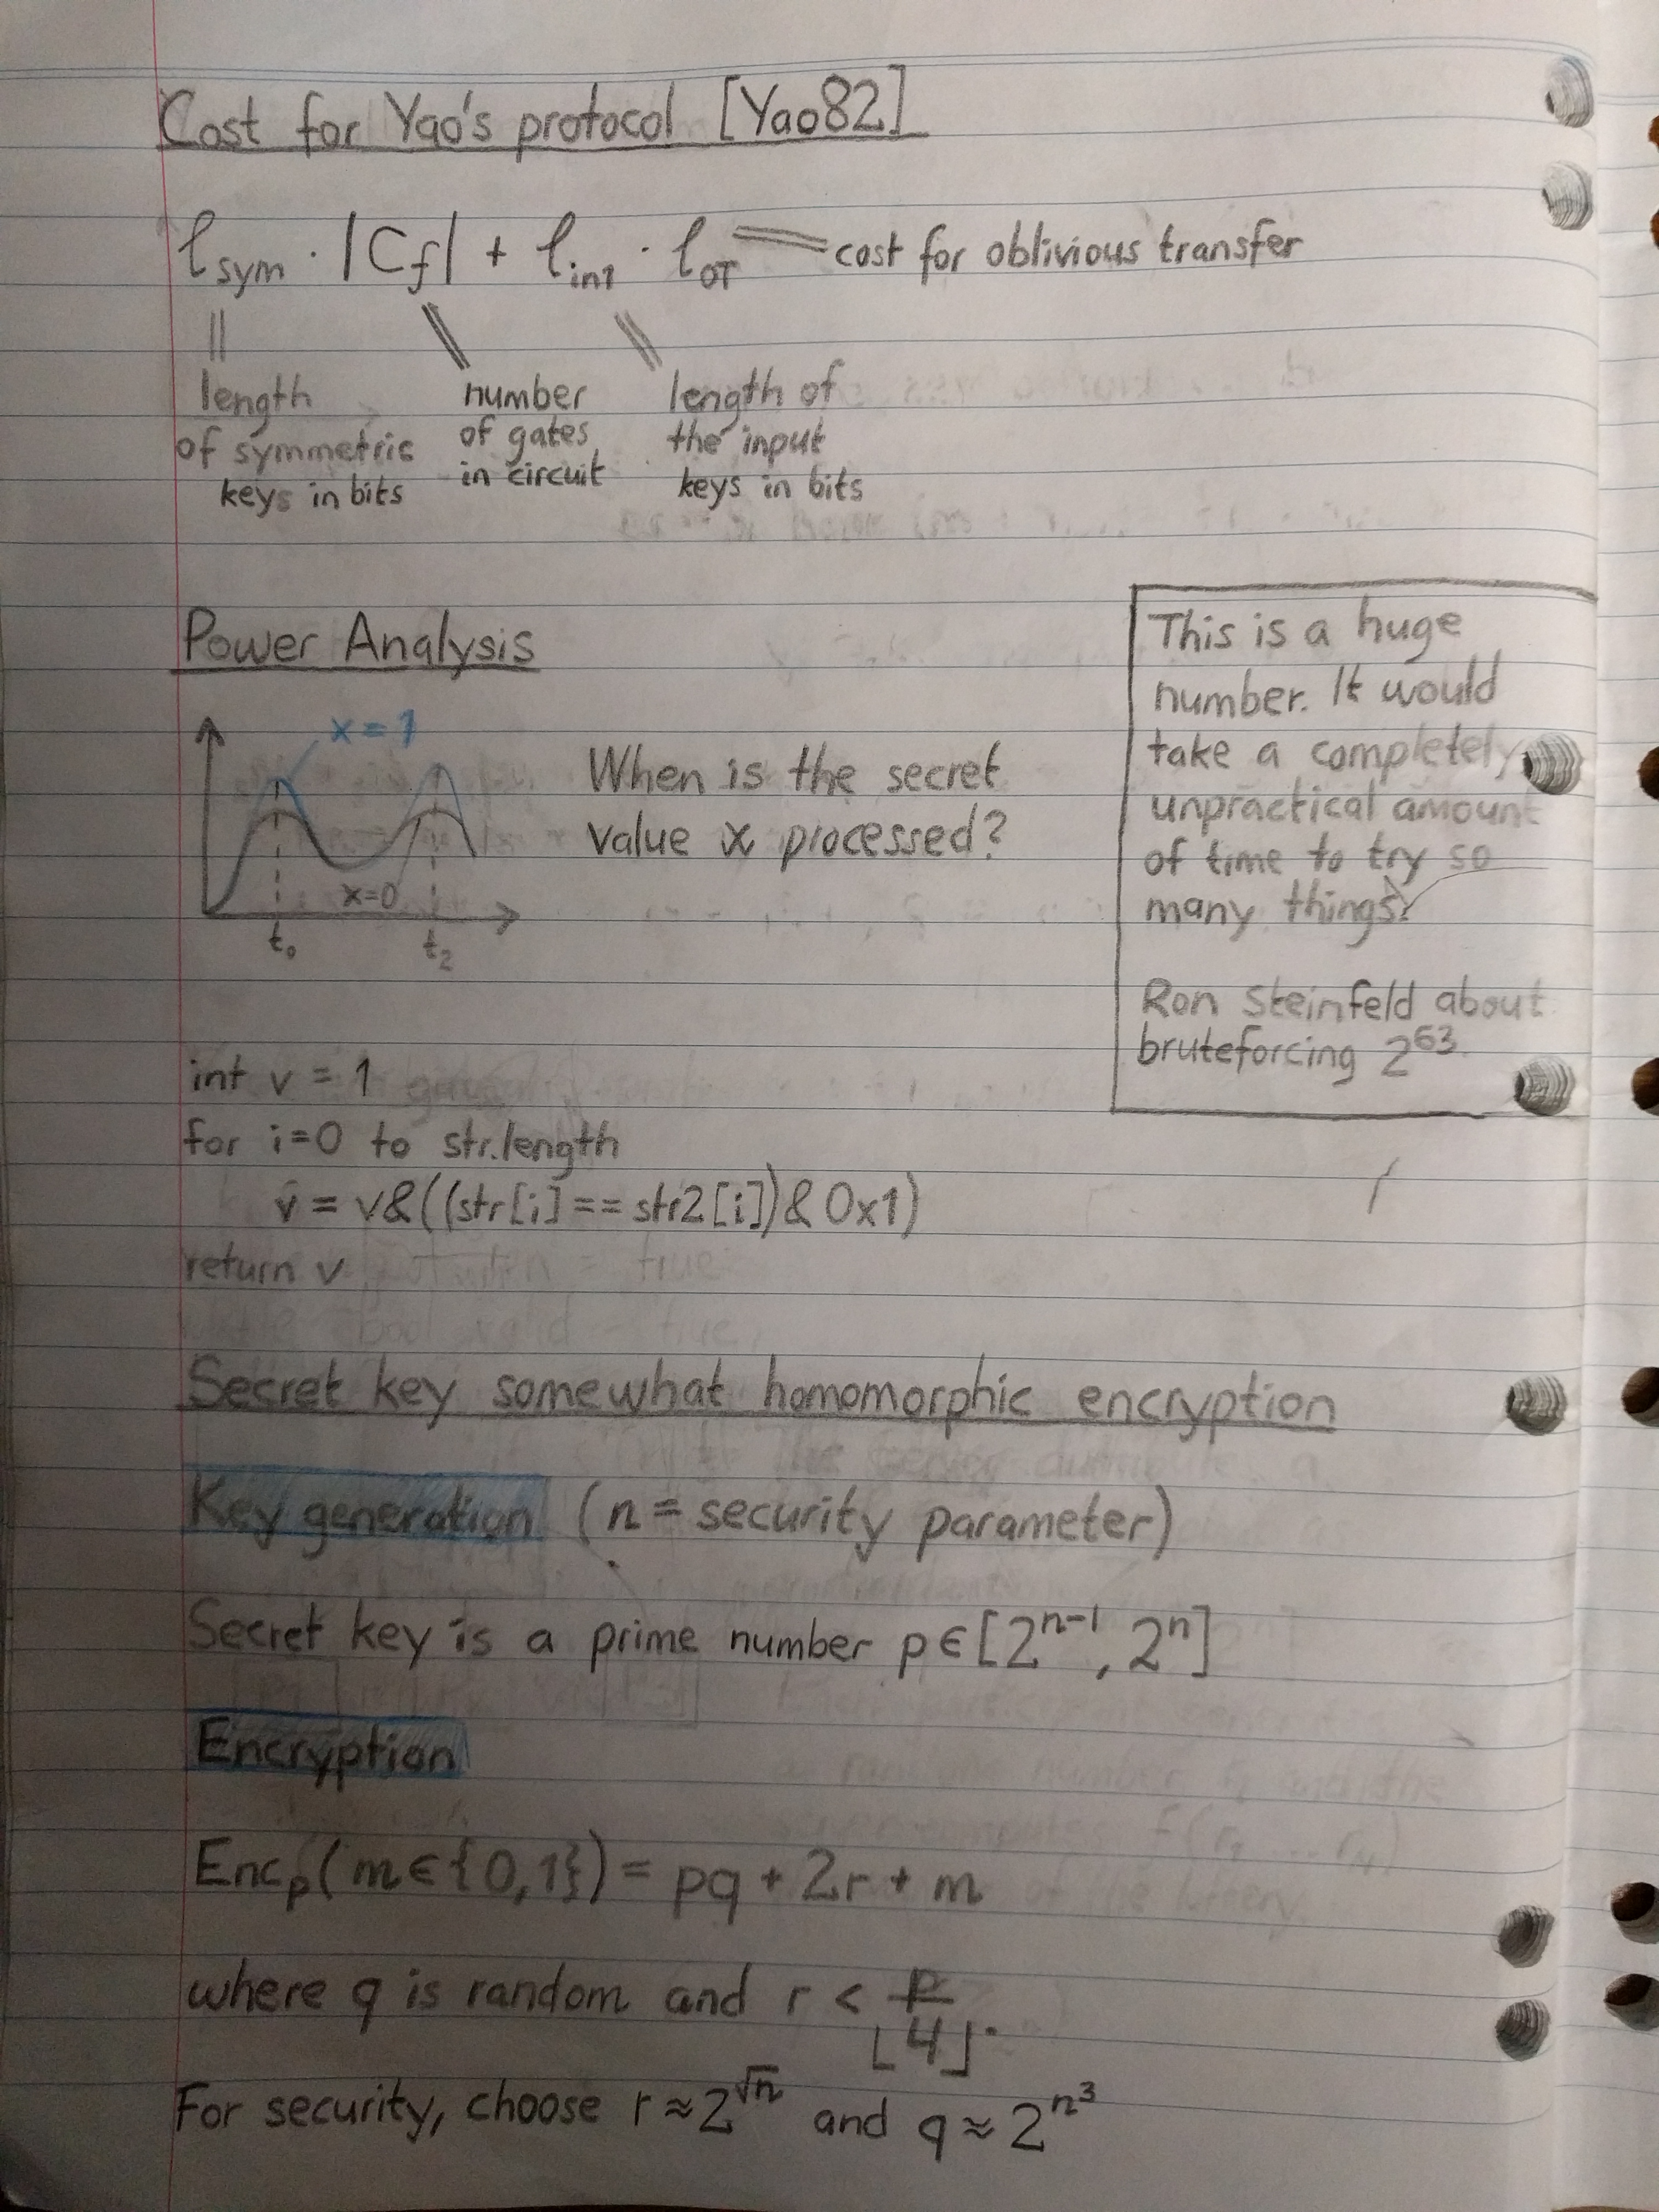 Cost for Yao's protocol [Yao82]
ℓsym · |Cf| + ℓin1 · ℓOT = cost for oblivious transfer
length
of symmetric
keys in bits
number
of gates
in circuit
length of
the input
keys in bits
Power Analysis
x=1
x=0
t₀
t₂
When is the secret
value x processed?
This is a huge
number. It would
take a completely
unpractical amount
of time to try so
many things.
Ron Steinfeld about
bruteforcing 2^63.
int v = 1
for i=0 to str.length
v = v&((str[i]==str2[i])&0x1)
return v
Secret key somewhat homomorphic encryption
Key generation (n = security parameter)
Secret key is a prime number p∈[2^(n-1), 2^n]
Encryption
Encp(m∈{0,1}) = pq + 2r + m
where q is random and r < ⌊p/4⌋.
For security, choose r≈2^√n and q≈2^(n^3)